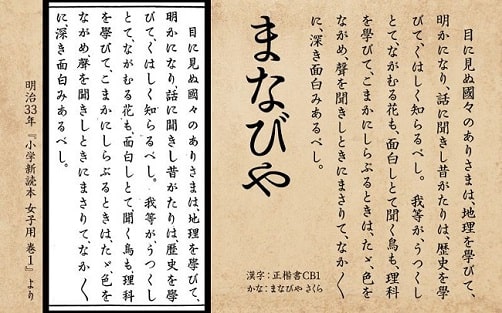 目に見ぬ國々のありさまは、地理を學びて、
明かになり、話に聞きし昔がたりは歴史を學
びて、くはしく知らるべし。我等が、うつくし
とて、ながむる花も、面白しとて聞く鳥も、理科
を學びて、こまかにしらぶるときは、たゞ、色を
ながめ、聲を聞きしときにまさりて、なか〱
に、深き面白みあるべし。
まなびや
漢字：正楷書CB1
かな：まなびや さくら
目に見ぬ國々のありさまは、地理を學びて、
明かになり、話に聞きし昔がたりは歴史を學
びて、くはしく知らるべし。我等が、うつくし
とて、ながむる花も、面白しとて聞く鳥も、理科
を學びて、こまかにしらぶるときは、たゞ、色を
ながめ、聲を聞きしときにまさりて、なか〱
に、深き面白みあるべし。
明治33年『小学新読本 女子用 巻1』より